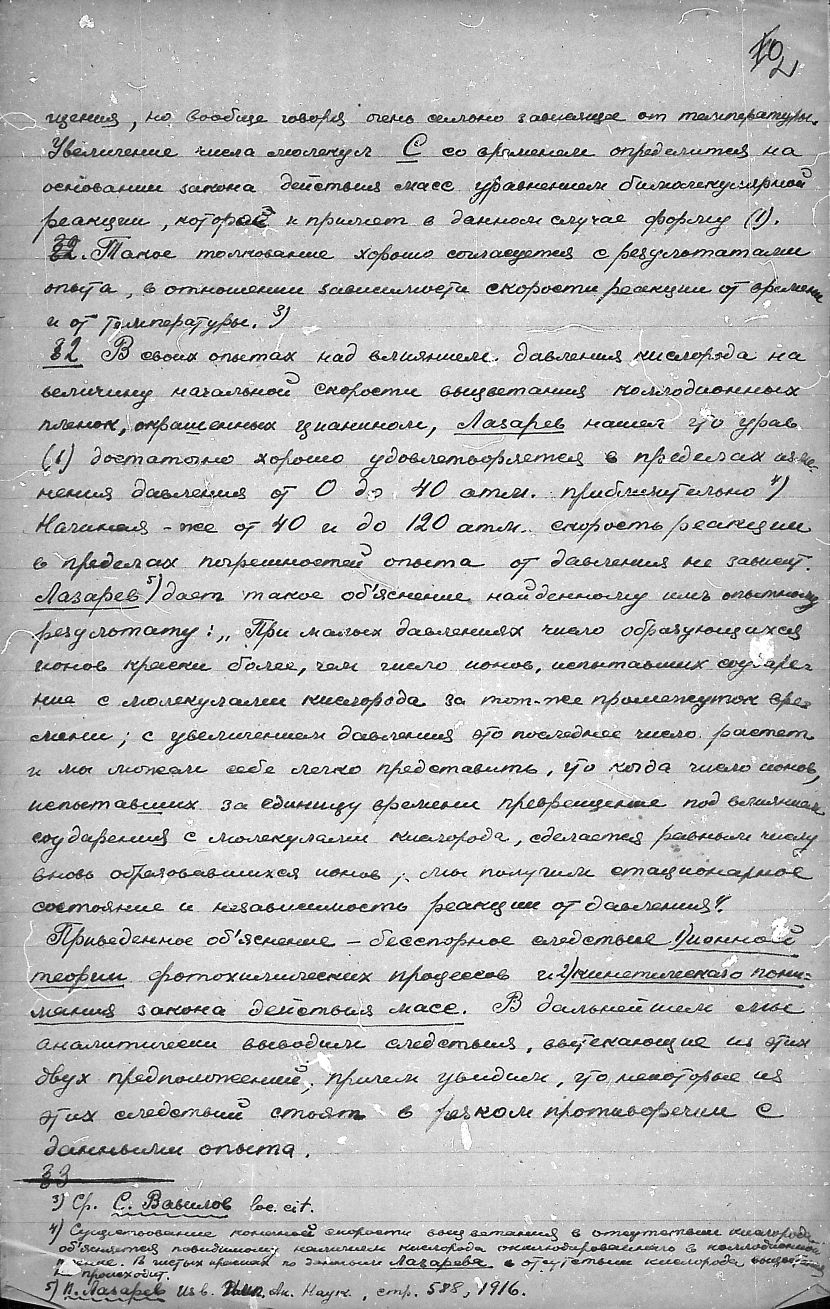 2
щения, но вообще говоря очень сильно зависящее от температуры.
Увеличение числа молекул С со временем определится на
основании закона действия масс уравнением бимолекулярной
реакции, которая и примет в данном случае форму (1).
Такое толкование хорошо согласуется с результатами
опыта, в отношении зависимости скорости реакции от времени
и от температуры. 3)
§2 В своих опытах над влиянием давления кислорода на
величину начальной скорости выцветания коллодионных
пленок, окрашенных цианином, Лазарев нашел что урав
(1) достаточно хорошо удовлетворяется в пределах изме-
нения давления от 0 до 40 атм. приблизительно 4)
Начиная-же от 40 и до 120 атм. скорость реакции
в пределах погрешностей опыта от давления не зависит.
Лазарев 5) дает такое об'яснение найденному имъ опытному
результату: „При малых давлениях число образующихся
ионов краски более, чем число ионов, испытавших соударе-
ние с молекулами кислорода за тот-же промежуток вре-
мени; с увеличением давления это последнее число растет
и мы можем себе легко представить, что когда число ионов,
испытавших за единицу времени превращение под влиянием
соударения с молекулами кислорода, сделается равным числу
вновь образовавшихся ионов, мы получим стационарное
состояние и независимость реакции от давления".
Приведенное об'яснение – бесспорное следствие 1) ионной
теории фотохимических процессов и 2) кинетического пони-
мания закона действия масс. В дальнейшем мы
аналитически выводим следствия, вытекающие из этих
двух предположений, причем увидим, что некоторые из
этих следствий стоят в резком противоречии с
данными опыта.
§3
3) Ср. С. Вавилов loc. cit.
4) Существование конечной скорости выцветания в отсутствии кислорода
об'ясняется повидимому наличием кислорода окклюдированного в коллодионной
пленке. В чистых красках по данным Лазарева в отсутствии кислорода выцветания
не происходит.
5) П. Лазарев Изв. Ак. Наук, стр. 588, 1916.